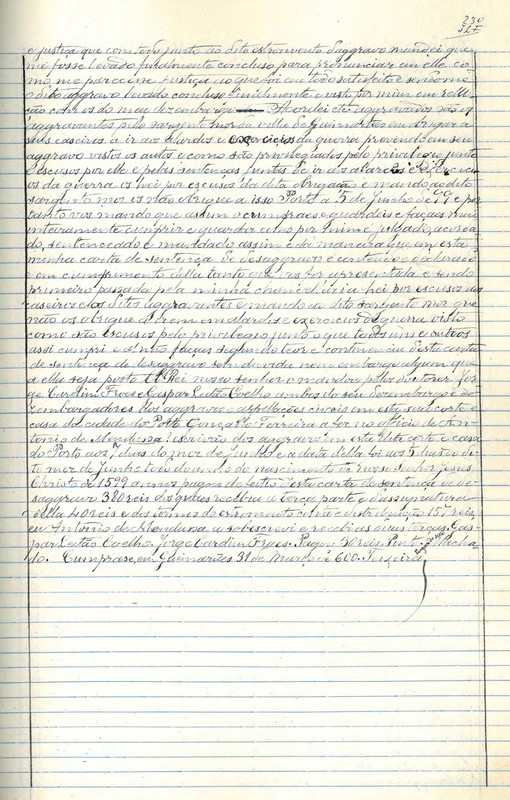 230
e justiça que com todo junto ao dito estromento d'aggravo mandei que
me fosse levado finalmente concluso para pronunciar em elle, co-
mo me parecesse justiça ao que foi em todo satisfeito e sendo-me
o dito aggravo levado concluso finalmente e visto por mim em rela-
ção com os do meu dezembargo Acordei etc aggravados são os
aggravantes pelo sargento mór da villa de Guimarães em obrigar a
seus caseiros a ir ao alardos e exercicios da guerra provendo em seu
aggravo vistos os autos e como são privilegiados pelo privilegio junto
e escusos por elle e pelas sentenças juntas de ir aos alardos e exercici
os da guerra os hei por escusos da dita obrigação e mando ao dito
sargento mór os não obrigue a isso Porto a 5 de Junho de 99 e por
tanto vos mando que assim o cumpraes e guardeis e façaes mui
inteiramente cumprir e guardar como por mim é julgado, acorda-
do, sentenceado e mandado assim e da maneira que em esta
minha carta de sentença de desaggravo é conteúdo e declarado
e em cumprimento della tanto que vos for apresentada e sendo
primeiro passada pela minha chancellaria hei por escusos aos
caseiros dos ditos aggravantes e mando ao dito sargento mór que
não os obrigue a irem em alardes e exercicios de guerra visto
como são escusos pelo privilegio junto o que todos uns e outros
assi cumpri e al não façaes segundo teor e continencia desta carta
de sentença de desaggravo sem duvida nem embargo algum que
a ella seja posto El Rei nosso senhor o mandou pelos doutores Jor-
ge Cardim Froes e Gaspar Leitão Coelho ambos do seu dezembargo e de-
zembargadores dos aggravos e appellações civeis em esta sua corte e
casa da cidade do Porto Gonçalo Ferreira a fez no officio de An-
tonio de Mendonsa escrivão dos aggravos em esta dita corte e casa
do Porto aos dias do mez de Junho e a data della foi aos 5 dias do di-
to mez de Junho todo do anno do nascimento de nosso Senhor Jesus
Christo de 1599 annos pagou de feitio desta carta de sentença de de-
saggravo 380 reis dos quaes recebeu a terça parte e d'assignatura
della 40 reis e dos termos do estromento conta e distribuição 157 reis,
eu Antonio de Mendonsa a sobescrevi e recebi as duas terças. Gas-
par Leitão Coelho. Jorge Cardim Froes. Pagou 50 reis. Pinto. Macha-
do. Cumpra-se, em Guimarães 31 de Março de 600. Teixeira